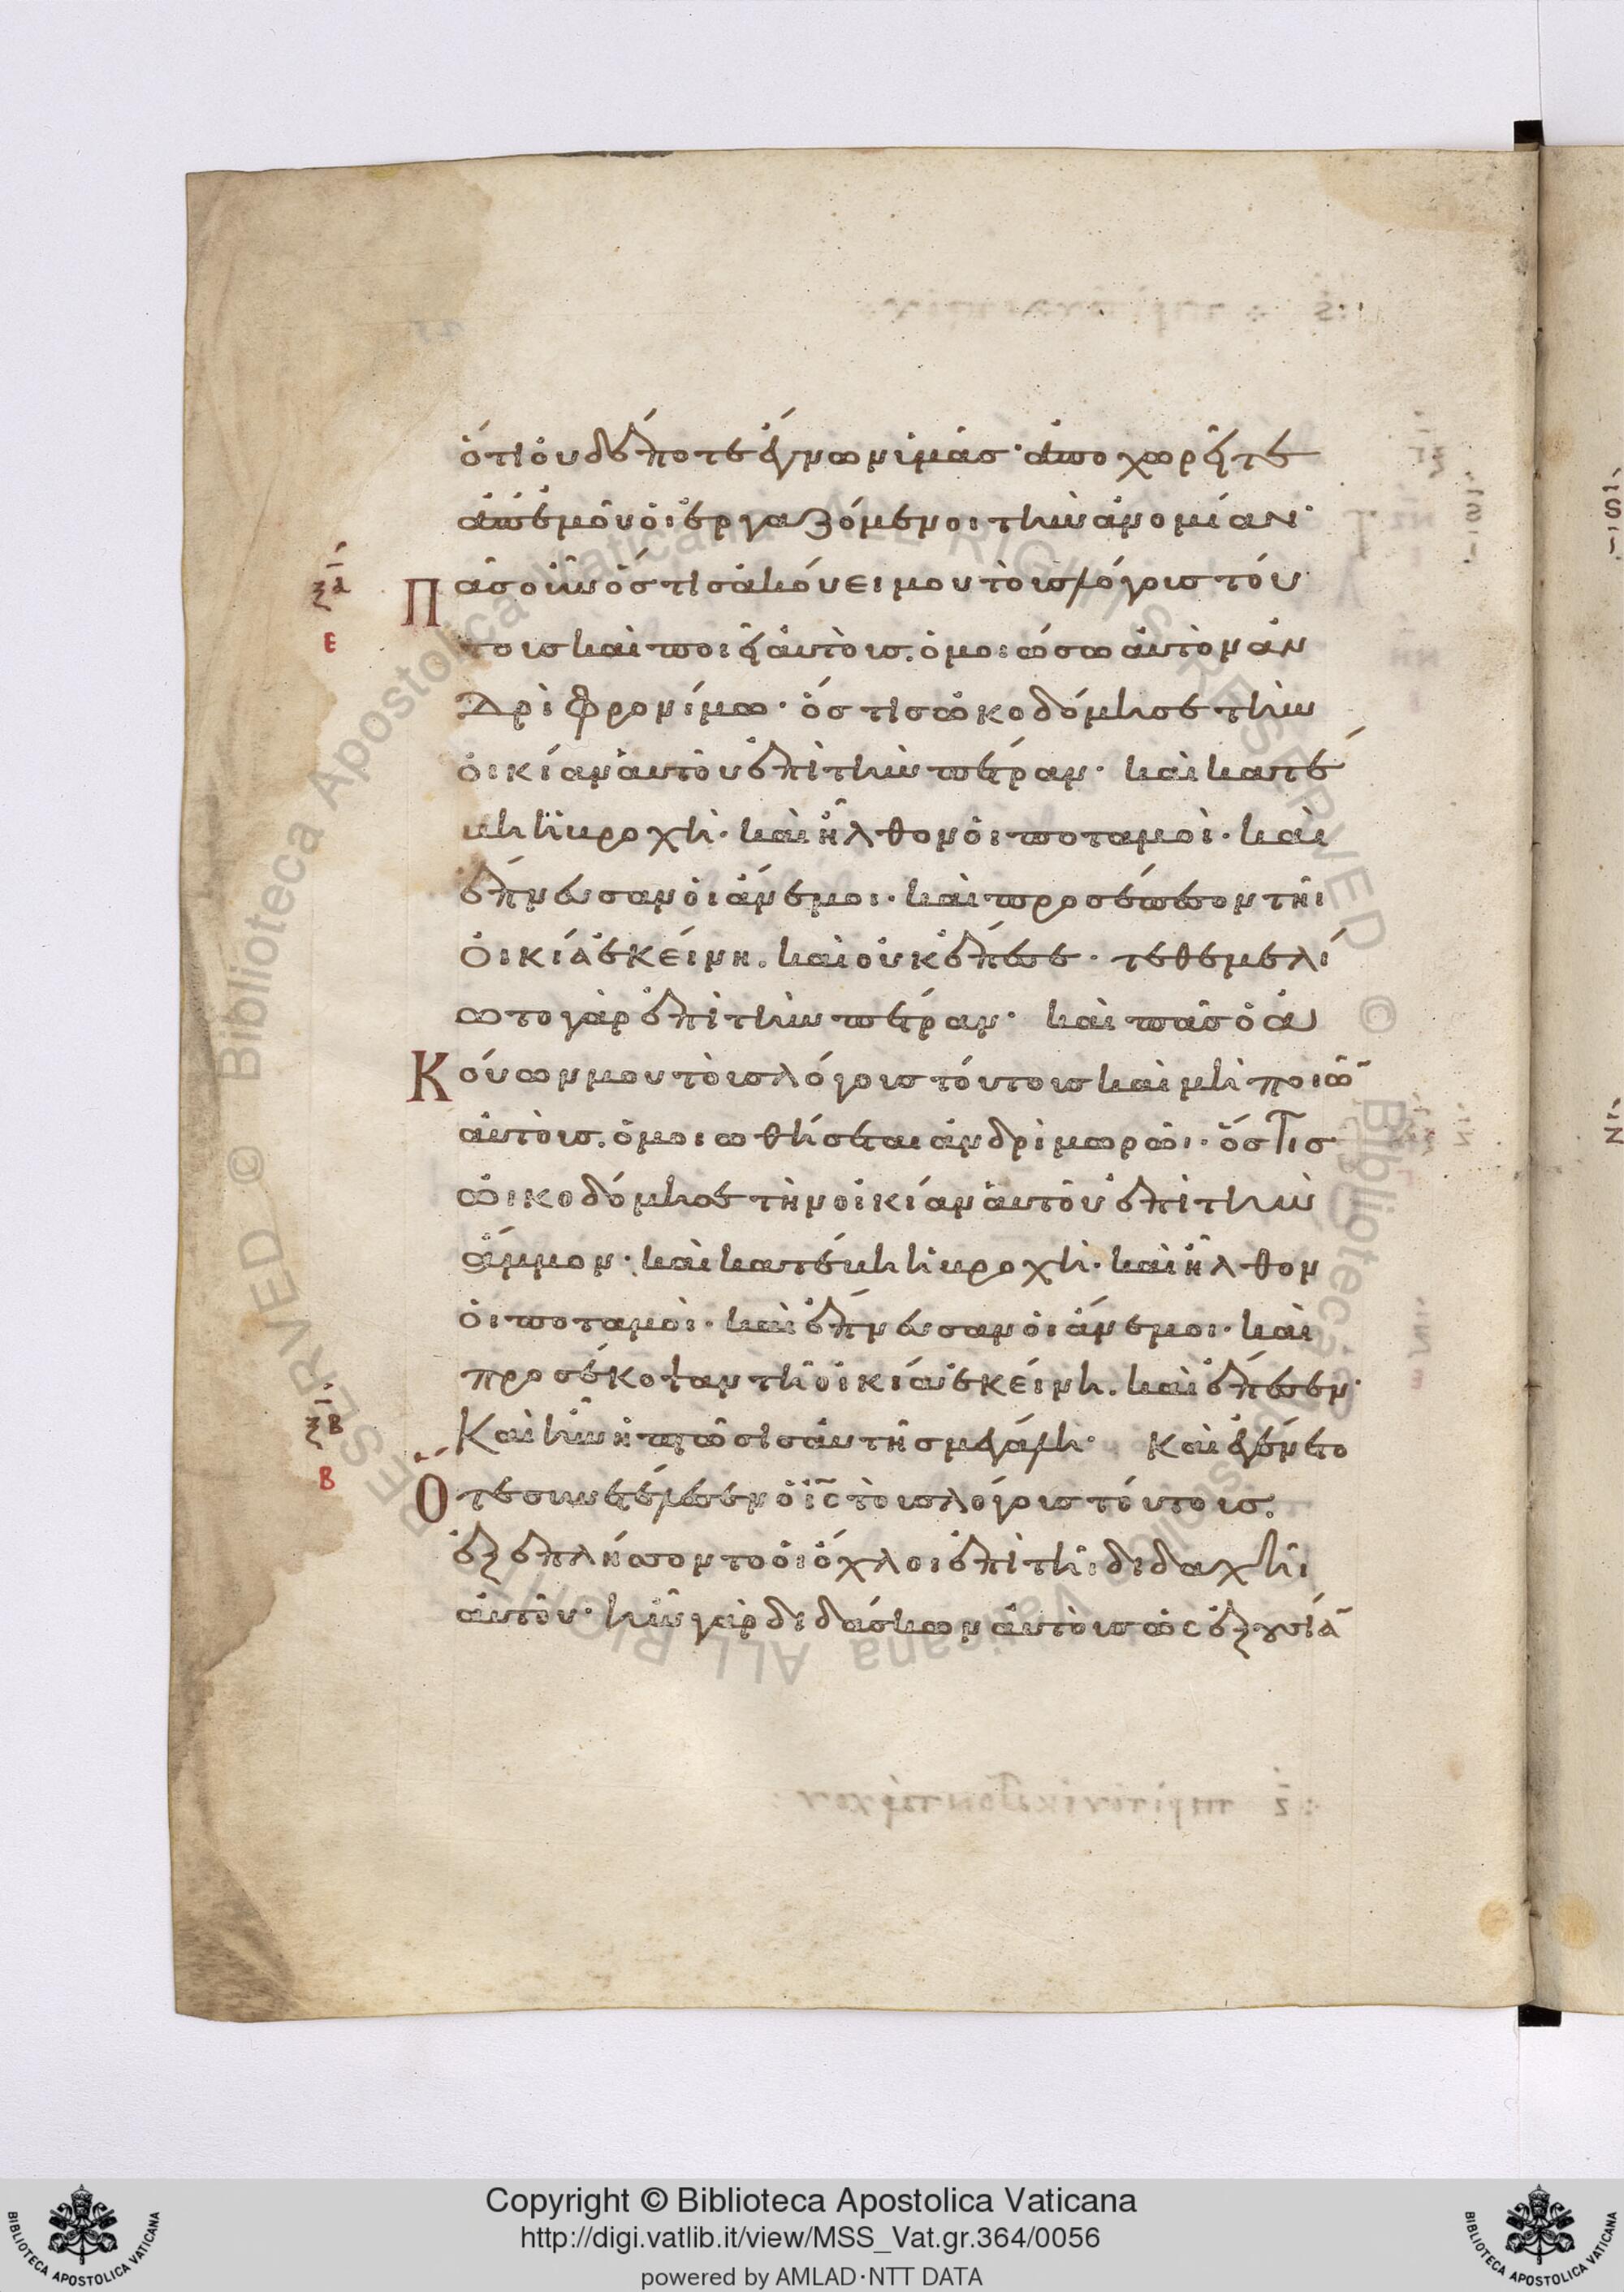 ὅτι οὐδέποτε ἔγνων ὑμᾶσ· ἀποχωρεῖτε
ἀπ' ἐμοῦ οἱ ἐργαζόμενοι τὴν ἀνομίαν·
ξα
Ε
Πᾶσ οὖν ὅστισ ἀκούει μου τοὺσ λόγουσ τού
τουσ καὶ ποιεῖ αὐτοὺσ. ὁμοιώσω αὐτὸν ἀν
δρὶ φρονίμω· ὅστισ ὠκοδόμησε τὴν
οἰκίαν αὐτοῦ ἐπὶ τὴν πέτραν· καὶ κατέ
βη ἡ βροχὴ· καὶ ἦλθον οἱ ποταμοὶ· καὶ
ἔπνευσαν οἱ ἄνεμοι· καὶ προσέπεσον τῆι
οἰκία ἐκείνη. καὶ οὐκ ἔπεσε· τεθεμελί
ωτο γὰρ ἐπὶ τὴν πέτραν· καὶ πᾶσ ὁ ἀ
Κούων μου τοὺσ λόγουσ τούτουσ καὶ μὴ ποιῶ̄
αὐτοὺσ. ὁμοιωθήσεται ἀνδρὶ μωρῶι· ὅστισ
ὠικοδόμησε τὴν οἰκίαν αὐτοῦ ἐπὶ τὴν
ἄμμον· καὶ κατέβη ἡ βροχὴ· καὶ ἦλθον
οἱ ποταμοὶ· καὶ ἔπνευσαν οἱ ἄνεμοι· καὶ
προσέκοψαν τῆ οἰκία ἐκείνη. καὶ ἔπεσεν·
ξβ
Β
Καὶ ἦν ἡ πτῶσισ αὐτῆσ μεγάλη· Καὶ ἐγένετο
Ὅτε συνετέλεσεν ὁ ι̅ς̅ τοὺσ λόγουσ τούτουσ.
ἐξεπλήσσοντο οἱ ὄχλοι ἐπὶ τῆι διδαχῆι
αὐτοῦ· ἦν γὰρ διδάσκων αὐτοὺσ ὡς ἐξουσίᾱ
Copyright © Biblioteca Apostolica Vaticana
http://digi.vatlib.it/view/MSS_Vat.gr.364/0056
powered by AMLAD·NTT DATA
BIBLIOTECA APOSTOLICA VATICANA
BIBLIOTECA APOSTOLICA VATICANA